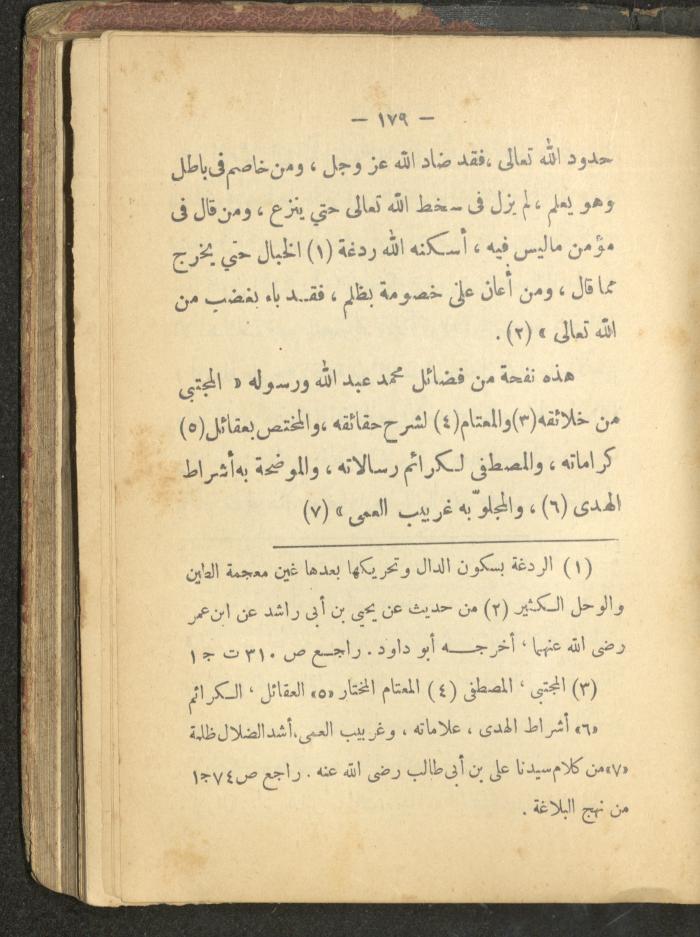 — ١٧٩ —
حدود الله تعالى ،فقد ضاد الله عز وجل ، ومن خاصم فى باطل
وهو يعلم ،لم يزل فى سخط الله تعالى حتي ينزع ، ومن قال فى
مؤمن ماليس فيه ، أسكنه الله ردغة (١) الخبال حتي يخرج
مما قال ، ومن أعان على خصومة بظلم ، فقد باء بغضب من
الله تعالى » (٢) .
هذه نفحة من فضائل محمد عبد الله ورسوله « المجتبى
من خلائقه(٣)والمعتام(٤) لشرح حقائقه ،والمختص بعقائل(٥)
كراماته ، والمصطفى لكرائم رسالاته ، والموضحة به أشراط
الهدى (٦) ، والمجلوّ به غربيب العمى » (٧)
(١) الردغة بسكون الدال وتحريكها بعدها غين معجمة الطين
والوحل الكثير (٢) من حديث عن يحيي بن أبى راشد عن ابن عمر
رضى الله عنهما ، أخرجه أبو داود . راجع ص ٣١٠ ت ج ١
(٣) المجتبى ، المصطفى (٤) المعتام المختار «٥» العقائل ، الكرائم
«٦» أشراط الهدى ، علاماته ، وغربيب العمى،أشد الضلال ظلمة
«٧»من كلام سيدنا على بن أبى طالب رضى الله عنه . راجع ص٧٤ج١
من نهج البلاغة .